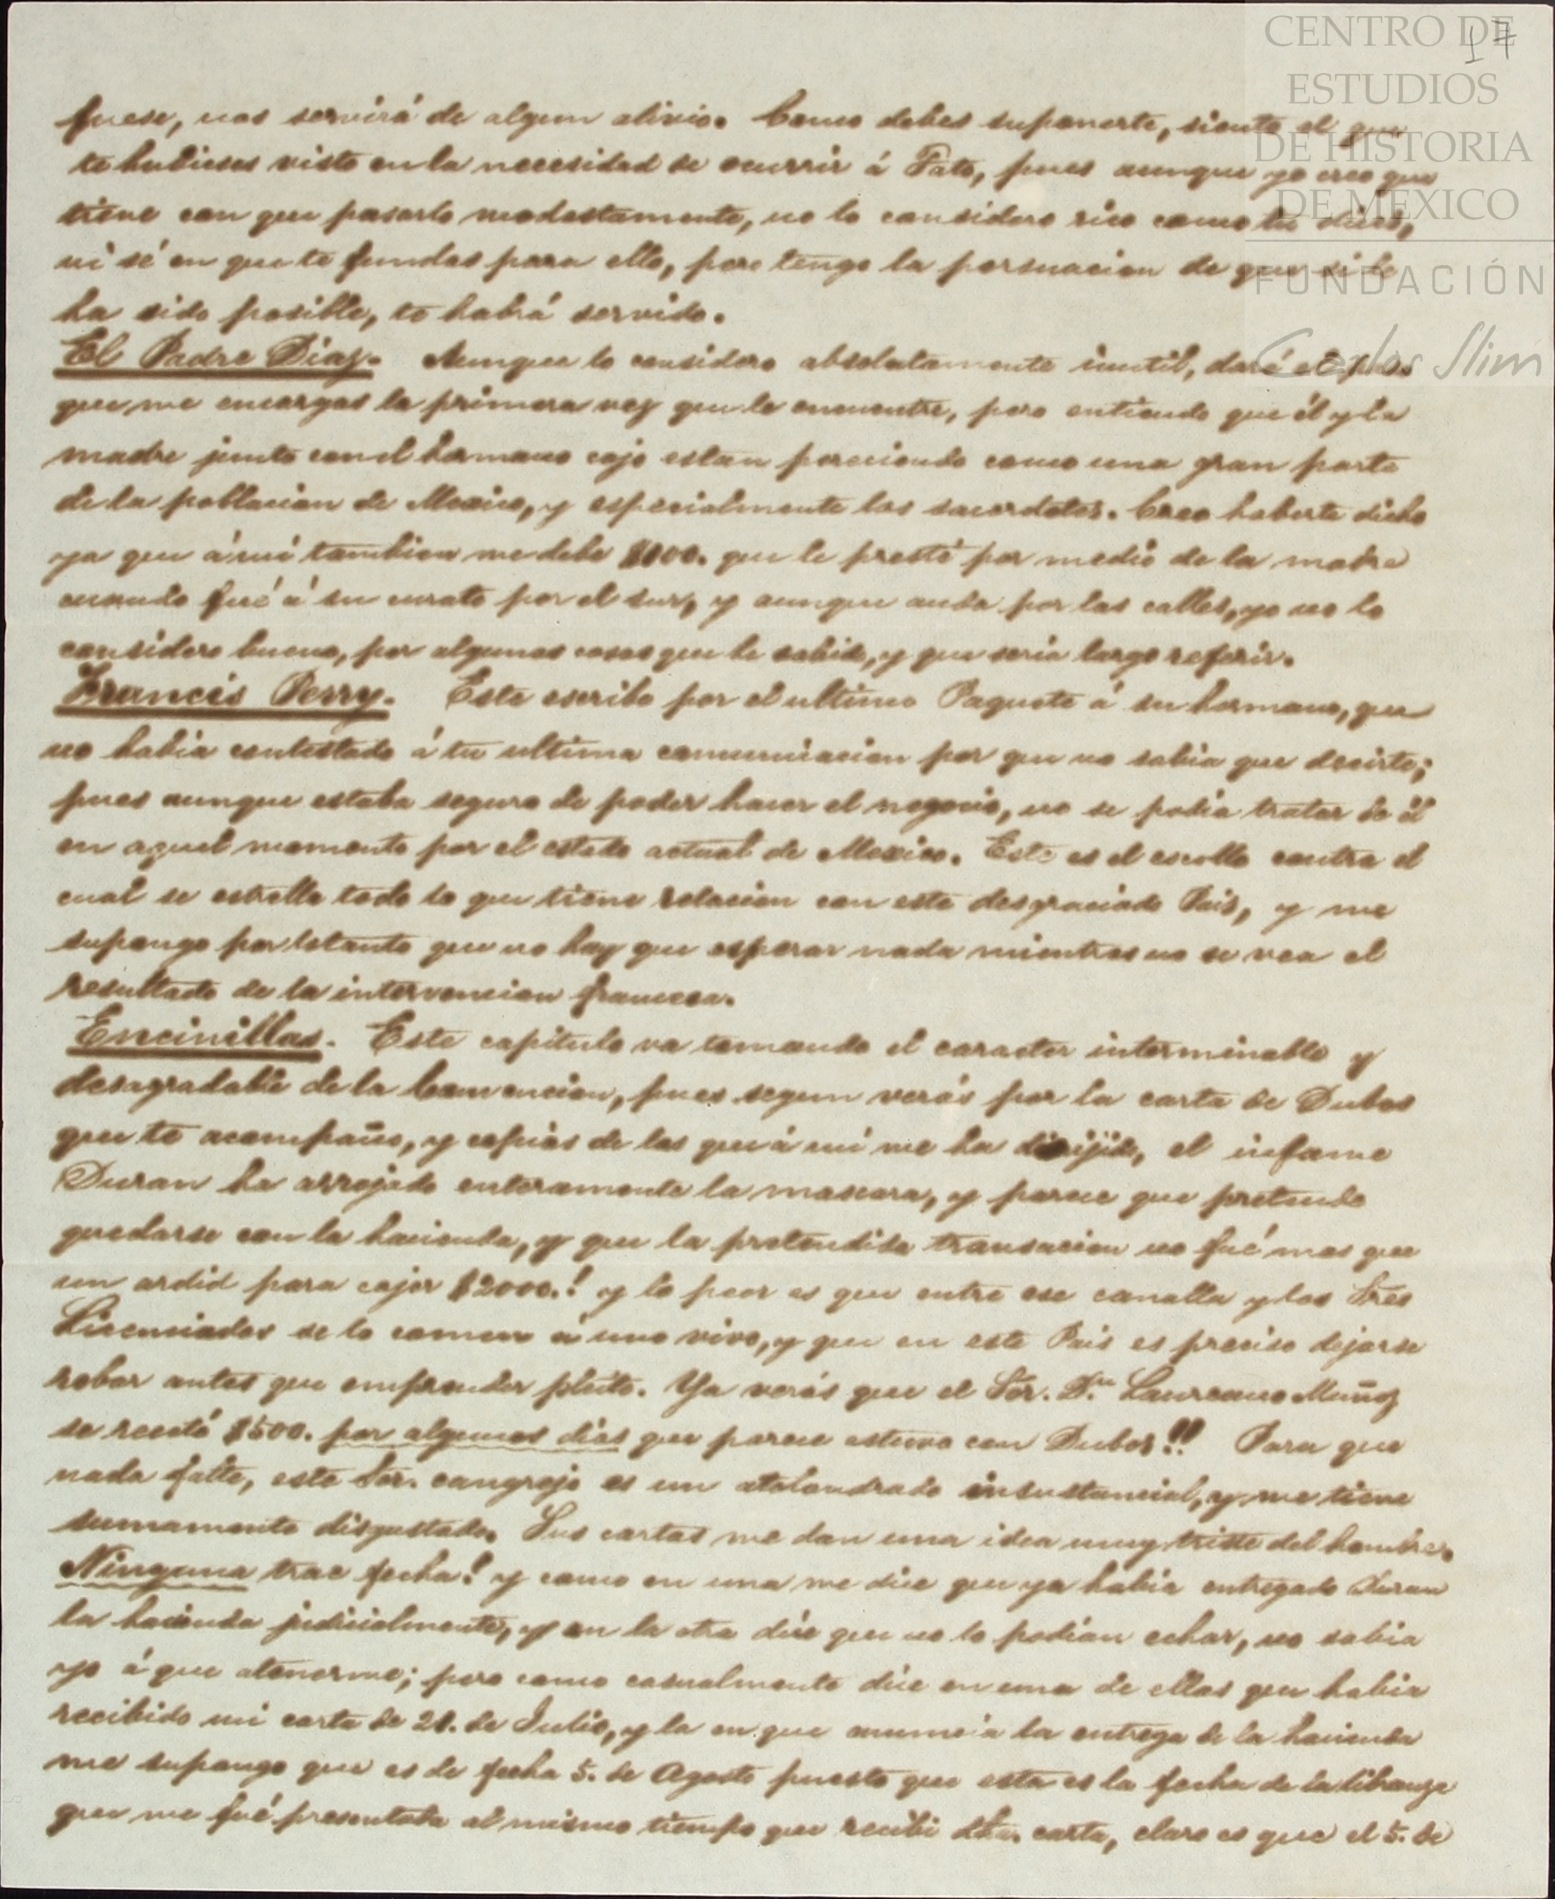 CENTRO DE
ESTUDIOS
DE HISTORIA
DE MEXICO
FUNDACIÓN
Carlos Slim
17
fuese, nos servirá de algun alivio. Como debes suponerte, siento el que
te hubieses visto en la necesidad de ocurrir á Pato, pues aunque yo creo que
tiene con que pasarlo modestamente, no lo considero rico como tu dices,
ni sé en que te fundas para ello, pero tengo la persuacion de que si le
ha sido posible, te habrá servido.
El Padre Diaz. Aunque lo considero absolutamente inutil, daré el paso
que me encargas la primera vez que le encuentre, pero entiendo que él y la
madre junto con el hermano cojo estan pereciendo como una gran parte
de la poblacion de Mexico, y especialmente los sacerdotes. Creo haberte dicho
ya que á mi tambien me debe $100. que le presté por medio de la madre
cuando fué á su curato por el sur, y aunque anda por las calles, yo no lo
considero bueno, por algunas cosas que he sabido, y que seria largo referir.
Francis Perry. Este escribe por el ultimo Paquete á su hermano, que
no habia contestado á tu ultima comunicacion por que no sabia que decirte;
pues aunque estaba seguro de poder hacer el negocio, no se podia tratar de él
en aquel momento por el estado actual de Mexico. Este es el escollo contra el
cual se estrella todo lo que tiene relacion con este desgraciado Pais, y me
supongo por lo tanto que no hay que esperar nada mientras no se vea el
resultado de la intervencion francesa.
Encinillas. Este capitulo va tomando el caracter interminable y
desagradable de la Convencion, pues segun verás por la carta de Dubos
que te acompaño, y copias de las que á mi me ha dirijido, el infame
Duran ha arrojado enteramente la mascara, y parece que pretende
quedarse con la hacienda, y que la pretendida transacion no fué mas que
un ardid para cojer $2000.! y lo peor es que entre ese canalla y los Sres
Licenciados se lo comen á uno vivo, y que en este Pais es preciso dejarse
robar antes que emprender pleito. Ya verás que el Sor. Dn. Laureano Muñoz
se recetó $500. por algunos dias que parece estuvo con Dubos!! Para que
nada falte, este Sor. cangrejo es un atolondrado insustancial, y me tiene
sumamente disgustado. Sus cartas me dan una idea muy triste del hombre.
Ninguna trae fecha! y como en una me dice que ya habia entregado Duran
la hacienda judicialmente, y en la otra dice que no lo podian echar, no sabia
yo á que atenerme; pero como casualmente dice en una de ellas que habia
recibido mi carta de 21. de Julio, y la en que anuncia la entrega de la hacienda
me supongo que es de fecha 5. de Agosto puesto que esta es la fecha de la libranza
que me fué presentada al mismo tiempo que recibi dha. carta, claro es que el 5. de